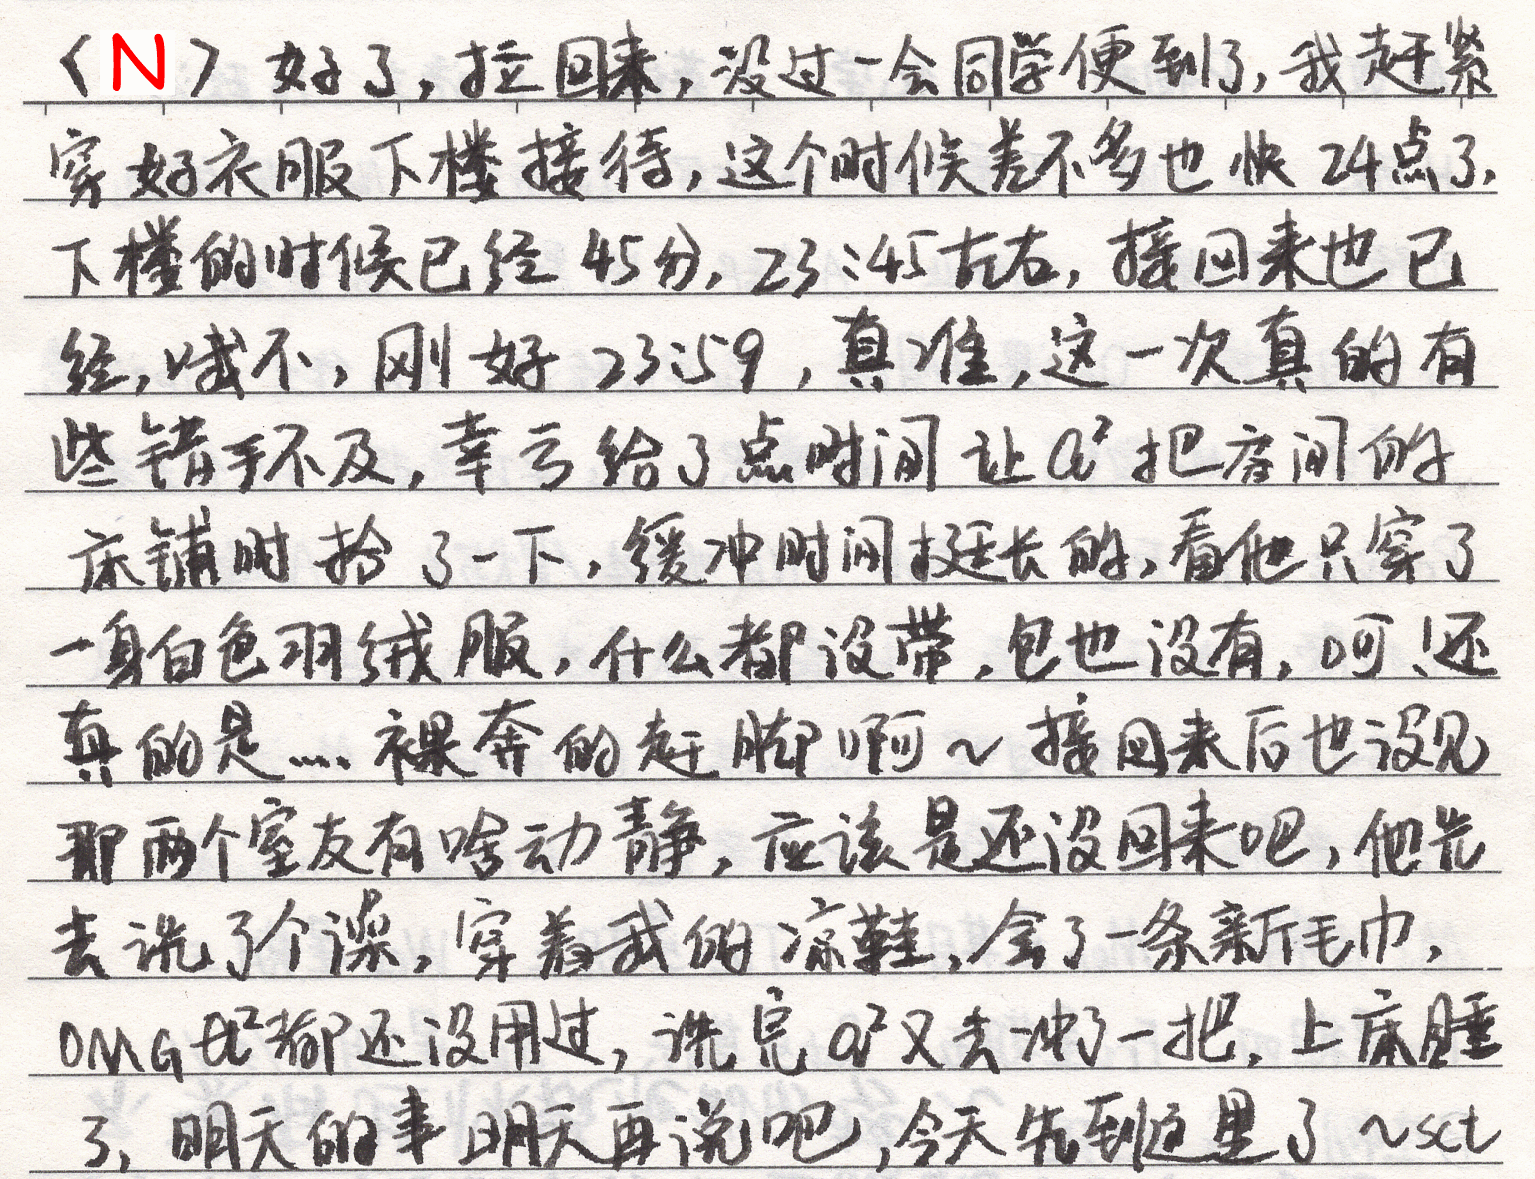 〈N〉好了，拉回来，没过一会同学便到了，我赶紧
穿好衣服下楼接待，这个时候差不多也快24点了，
下楼的时候已经45分，23:45左右，接回来也已
经，哦不，刚好23:59，真准，这一次真的有
些错手不及，幸亏给了点时间让a²把房间的
床铺时拾了一下，缓冲时间挺长的，看他只穿了
一身白色羽绒服，什么都没带，包也没有，呵！还
真的是....裸奔的赶脚啊～接回来后也没见
那两个室友有啥动静，应该是还没回来吧，他先
去洗了个澡，穿着我的凉鞋，拿了一条新毛巾，
OMG a²都还没用过，洗完a²又去冲了一把，上床睡
了，明天的事明天再说吧，今天先到这里了～sct